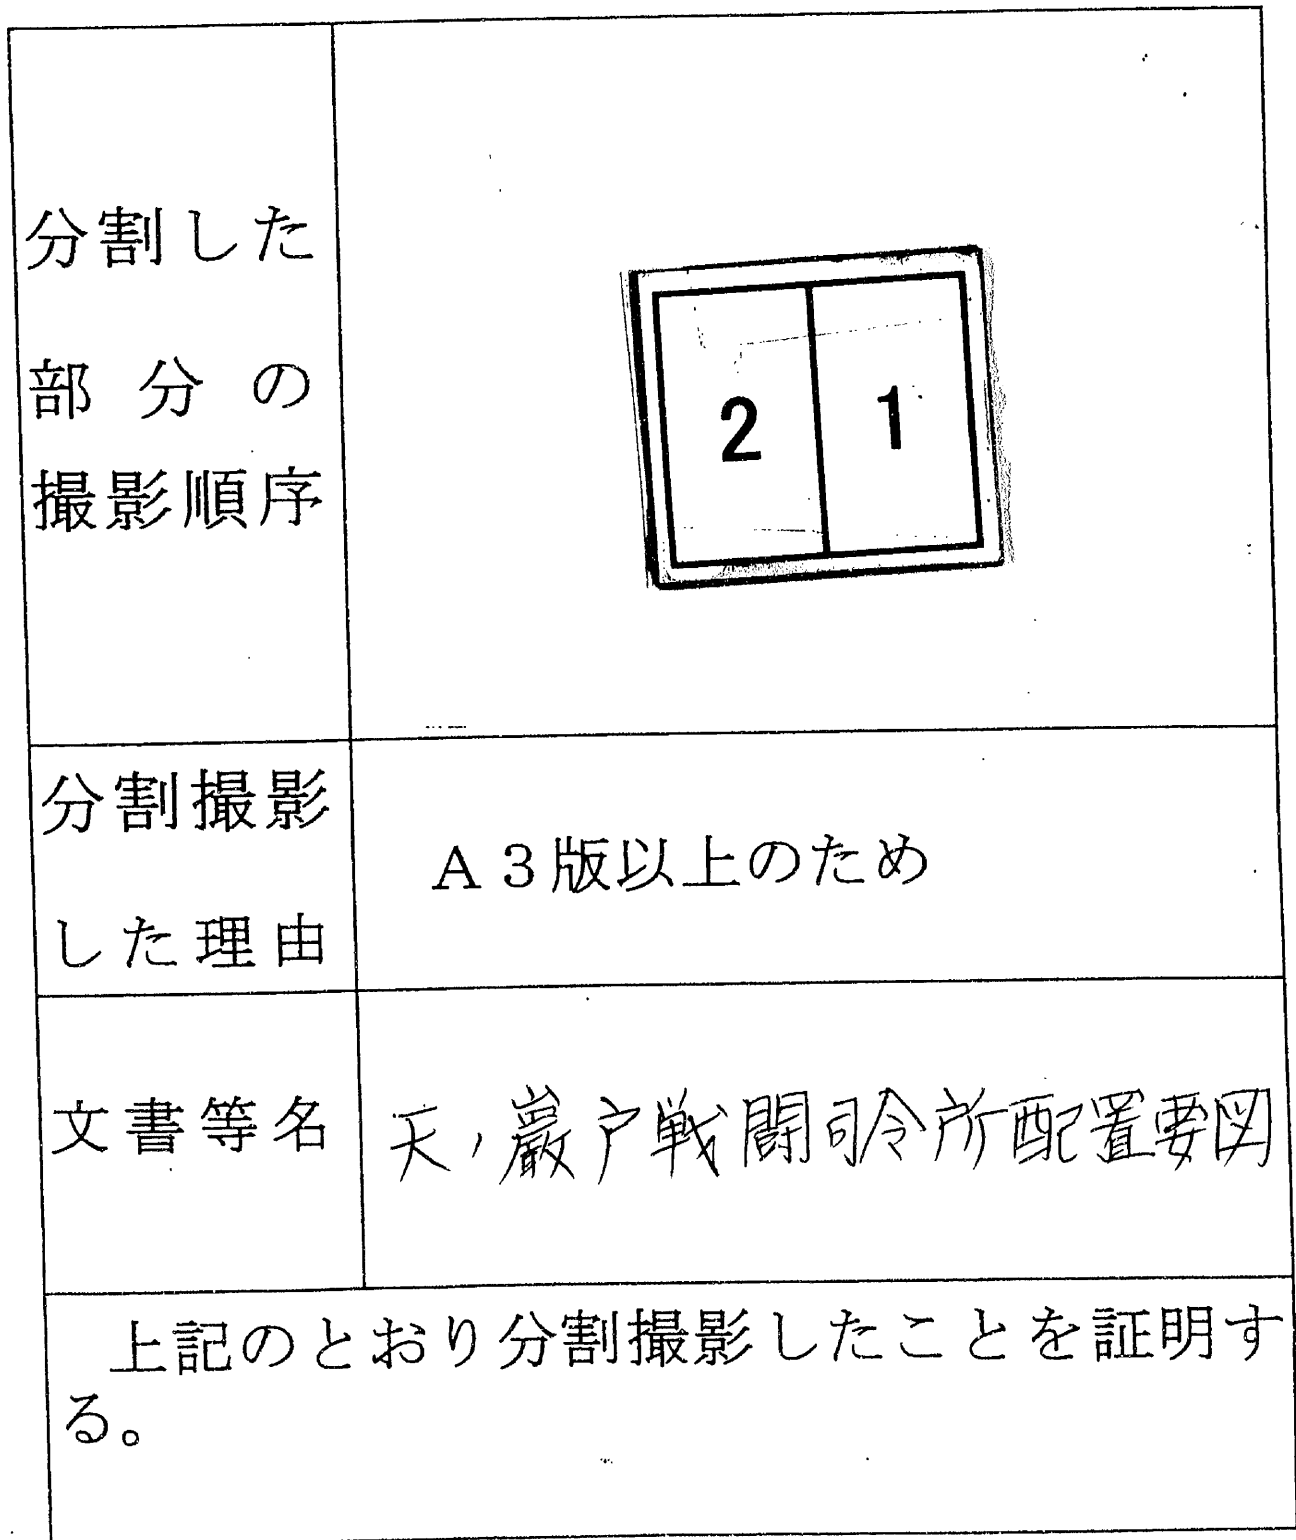 分割した
部分の
撮影順序
2 1
分割撮影
した理由
A3版以上のため
文書等名
天ノ巌戸戦闘司令所配置要図
上記のとおり分割撮影したことを証明す
る。